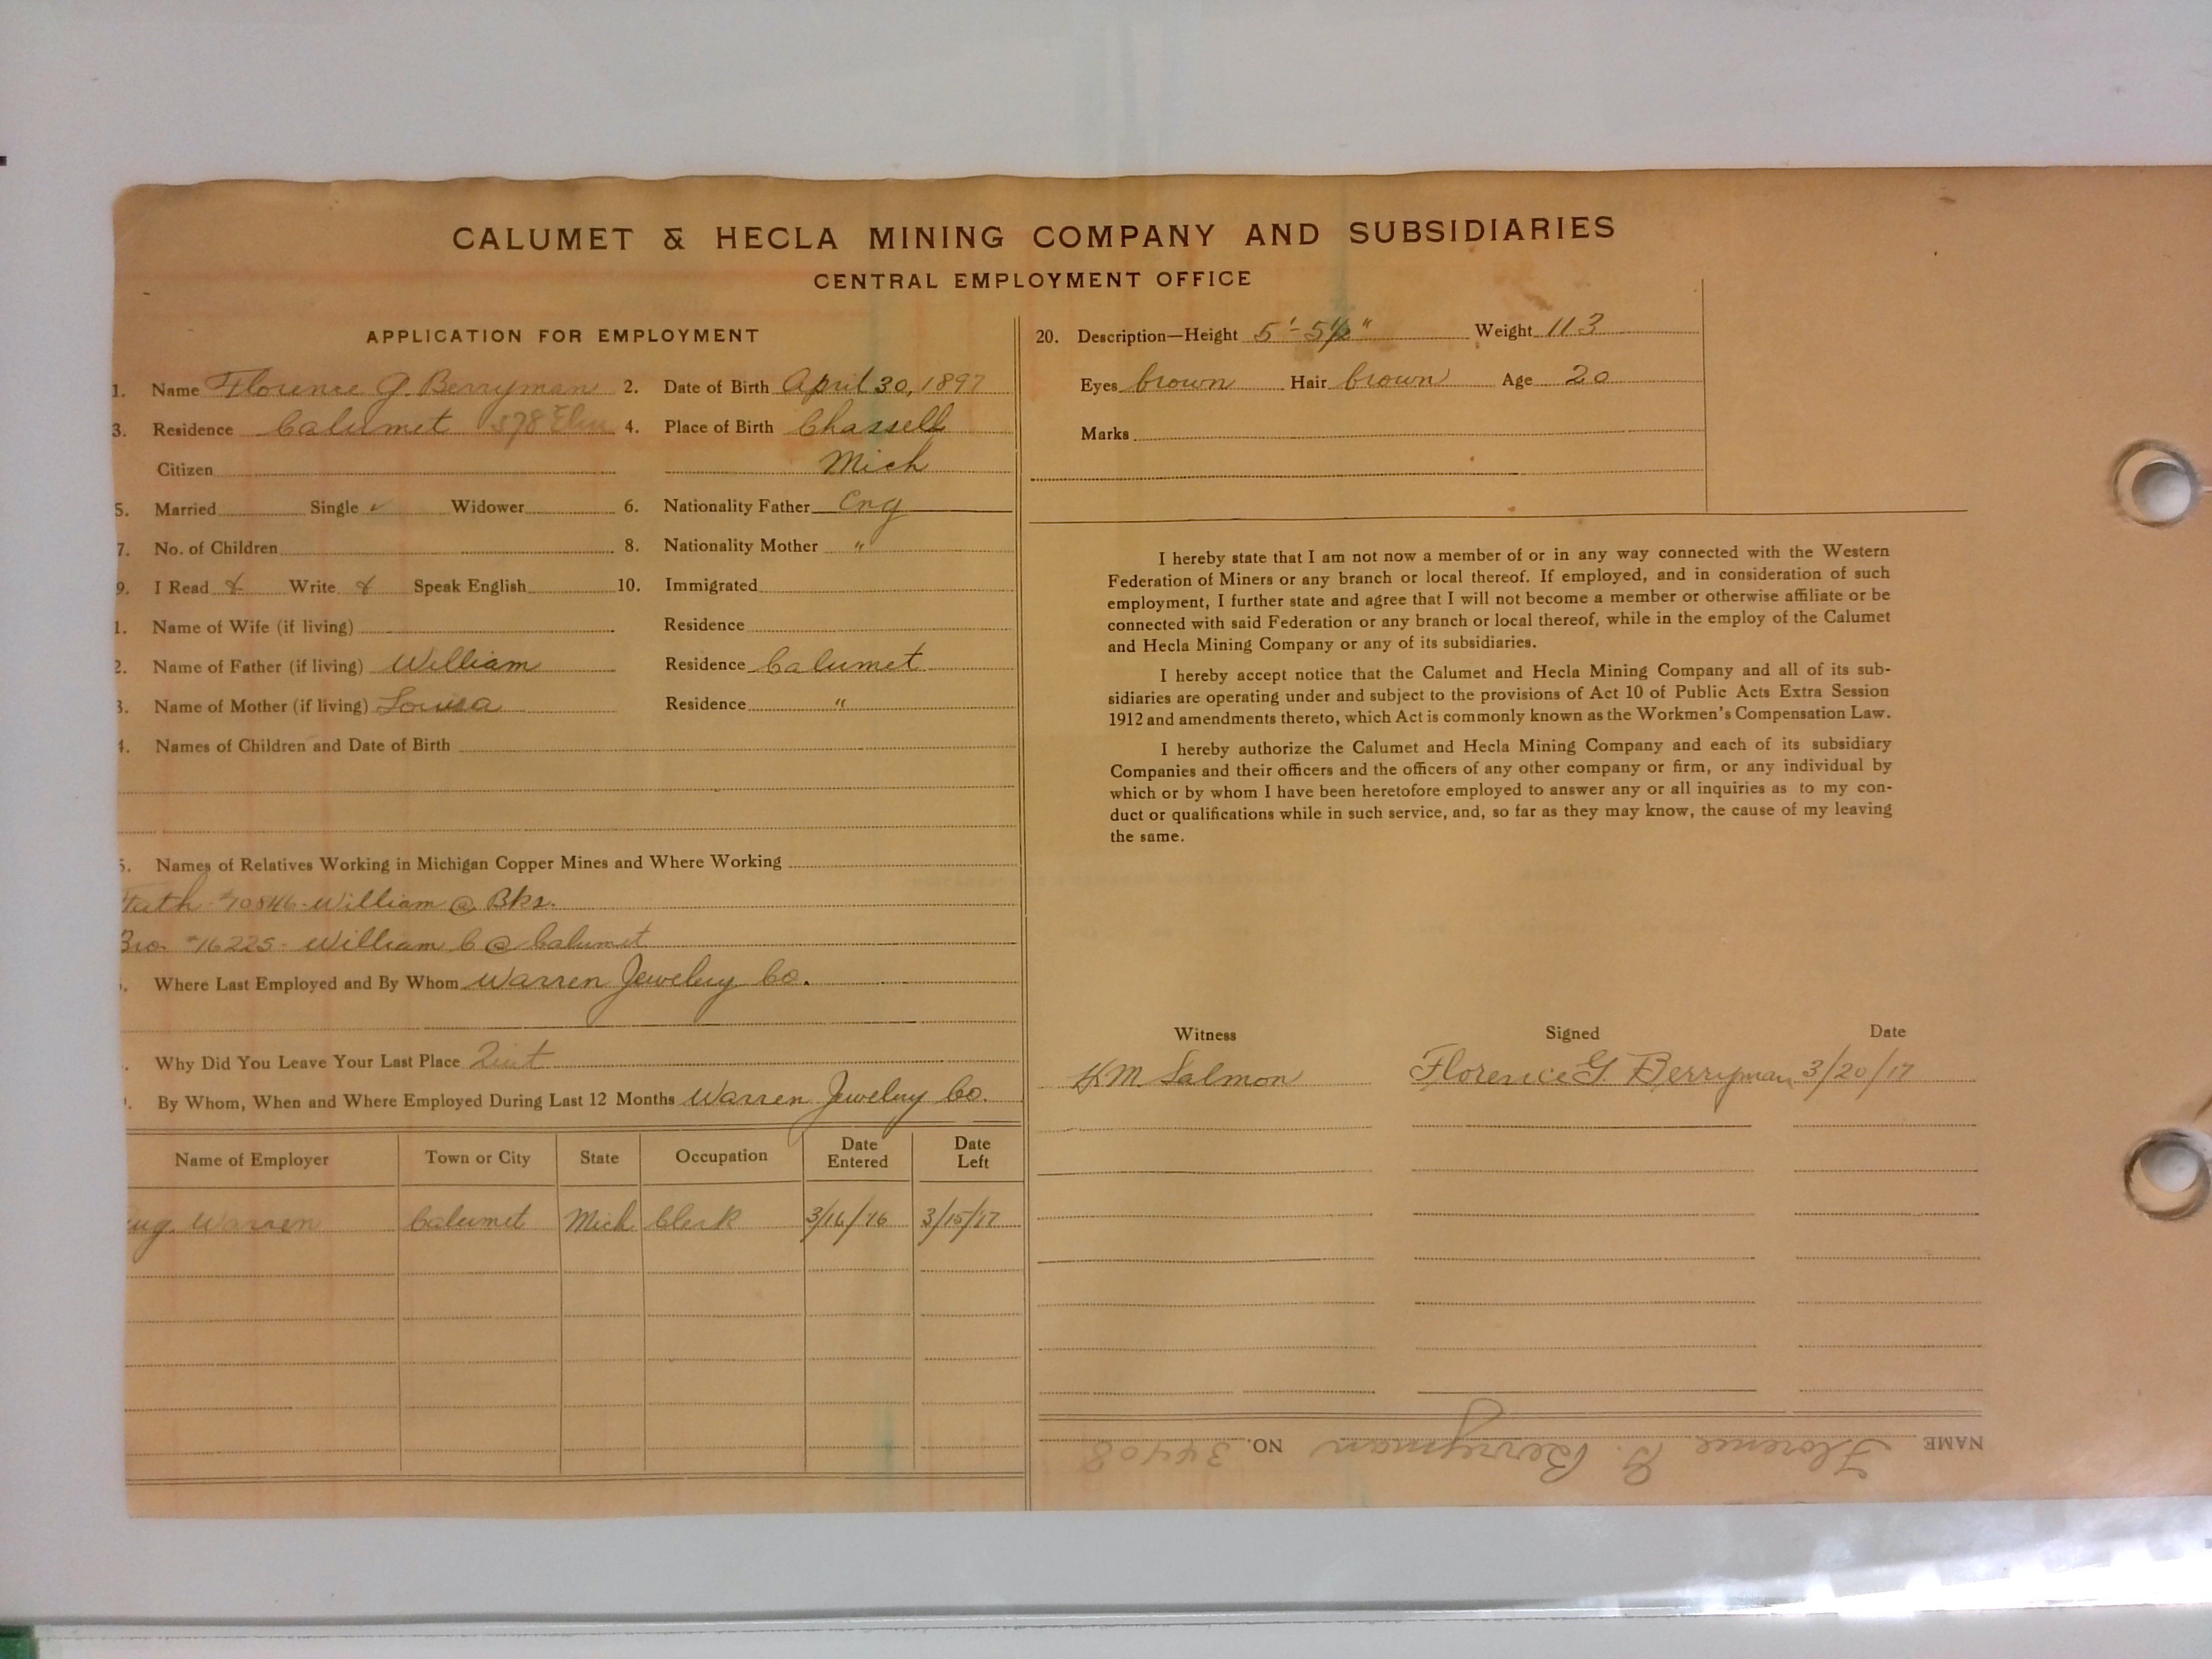 CALUMET & HECLA MINING COMPANY AND SUBSIDIARIES
CENTRAL EMPLOYMENT OFFICE
APPLICATION FOR EMPLOYMENT
1. Name Florence G. Berryman 2. Date of Birth April 30, 1897
3. Residence Calumet 578 Elm 4. Place of Birth Chassell
Citizen Mich
5. Married Single ✓ Widower 6. Nationality Father Eng
7. No. of Children 8. Nationality Mother "
9. I Read Write Speak English 10. Immigrated
1. Name of Wife (if living) Residence
2. Name of Father (if living) William Residence Calumet
3. Name of Mother (if living) Louisa Residence "
4. Names of Children and Date of Birth
5. Names of Relatives Working in Michigan Copper Mines and Where Working
Fath William @ Bks.
Bro. #16225- William C @ Calumet
Where Last Employed and By Whom Warren Jewelry Co.
Why Did You Leave Your Last Place Quit
By Whom, When and Where Employed During Last 12 Months Warren Jewelry Co.
Name of Employer Town or City State Occupation Date Entered Date Left
aug. Warren Calumet Mich Clerk 3/16/16 3/15/17
20. Description—Height 5'-5½" Weight 113
Eyes brown Hair brown Age 20
Marks
I hereby state that I am not now a member of or in any way connected with the Western
Federation of Miners or any branch or local thereof. If employed, and in consideration of such
employment, I further state and agree that I will not become a member or otherwise affiliate or be
connected with said Federation or any branch or local thereof, while in the employ of the Calumet
and Hecla Mining Company or any of its subsidiaries.
I hereby accept notice that the Calumet and Hecla Mining Company and all of its sub-
sidiaries are operating under and subject to the provisions of Act 10 of Public Acts Extra Session
1912 and amendments thereto, which Act is commonly known as the Workmen's Compensation Law.
I hereby authorize the Calumet and Hecla Mining Company and each of its subsidiary
Companies and their officers and the officers of any other company or firm, or any individual by
which or by whom I have been heretofore employed to answer any or all inquiries as to my con-
duct or qualifications while in such service, and, so far as they may know, the cause of my leaving
the same.
Witness Signed Date
Salmon Florence G. Berryman 3/20/17
NAME Florence G. Berryman NO. 34408